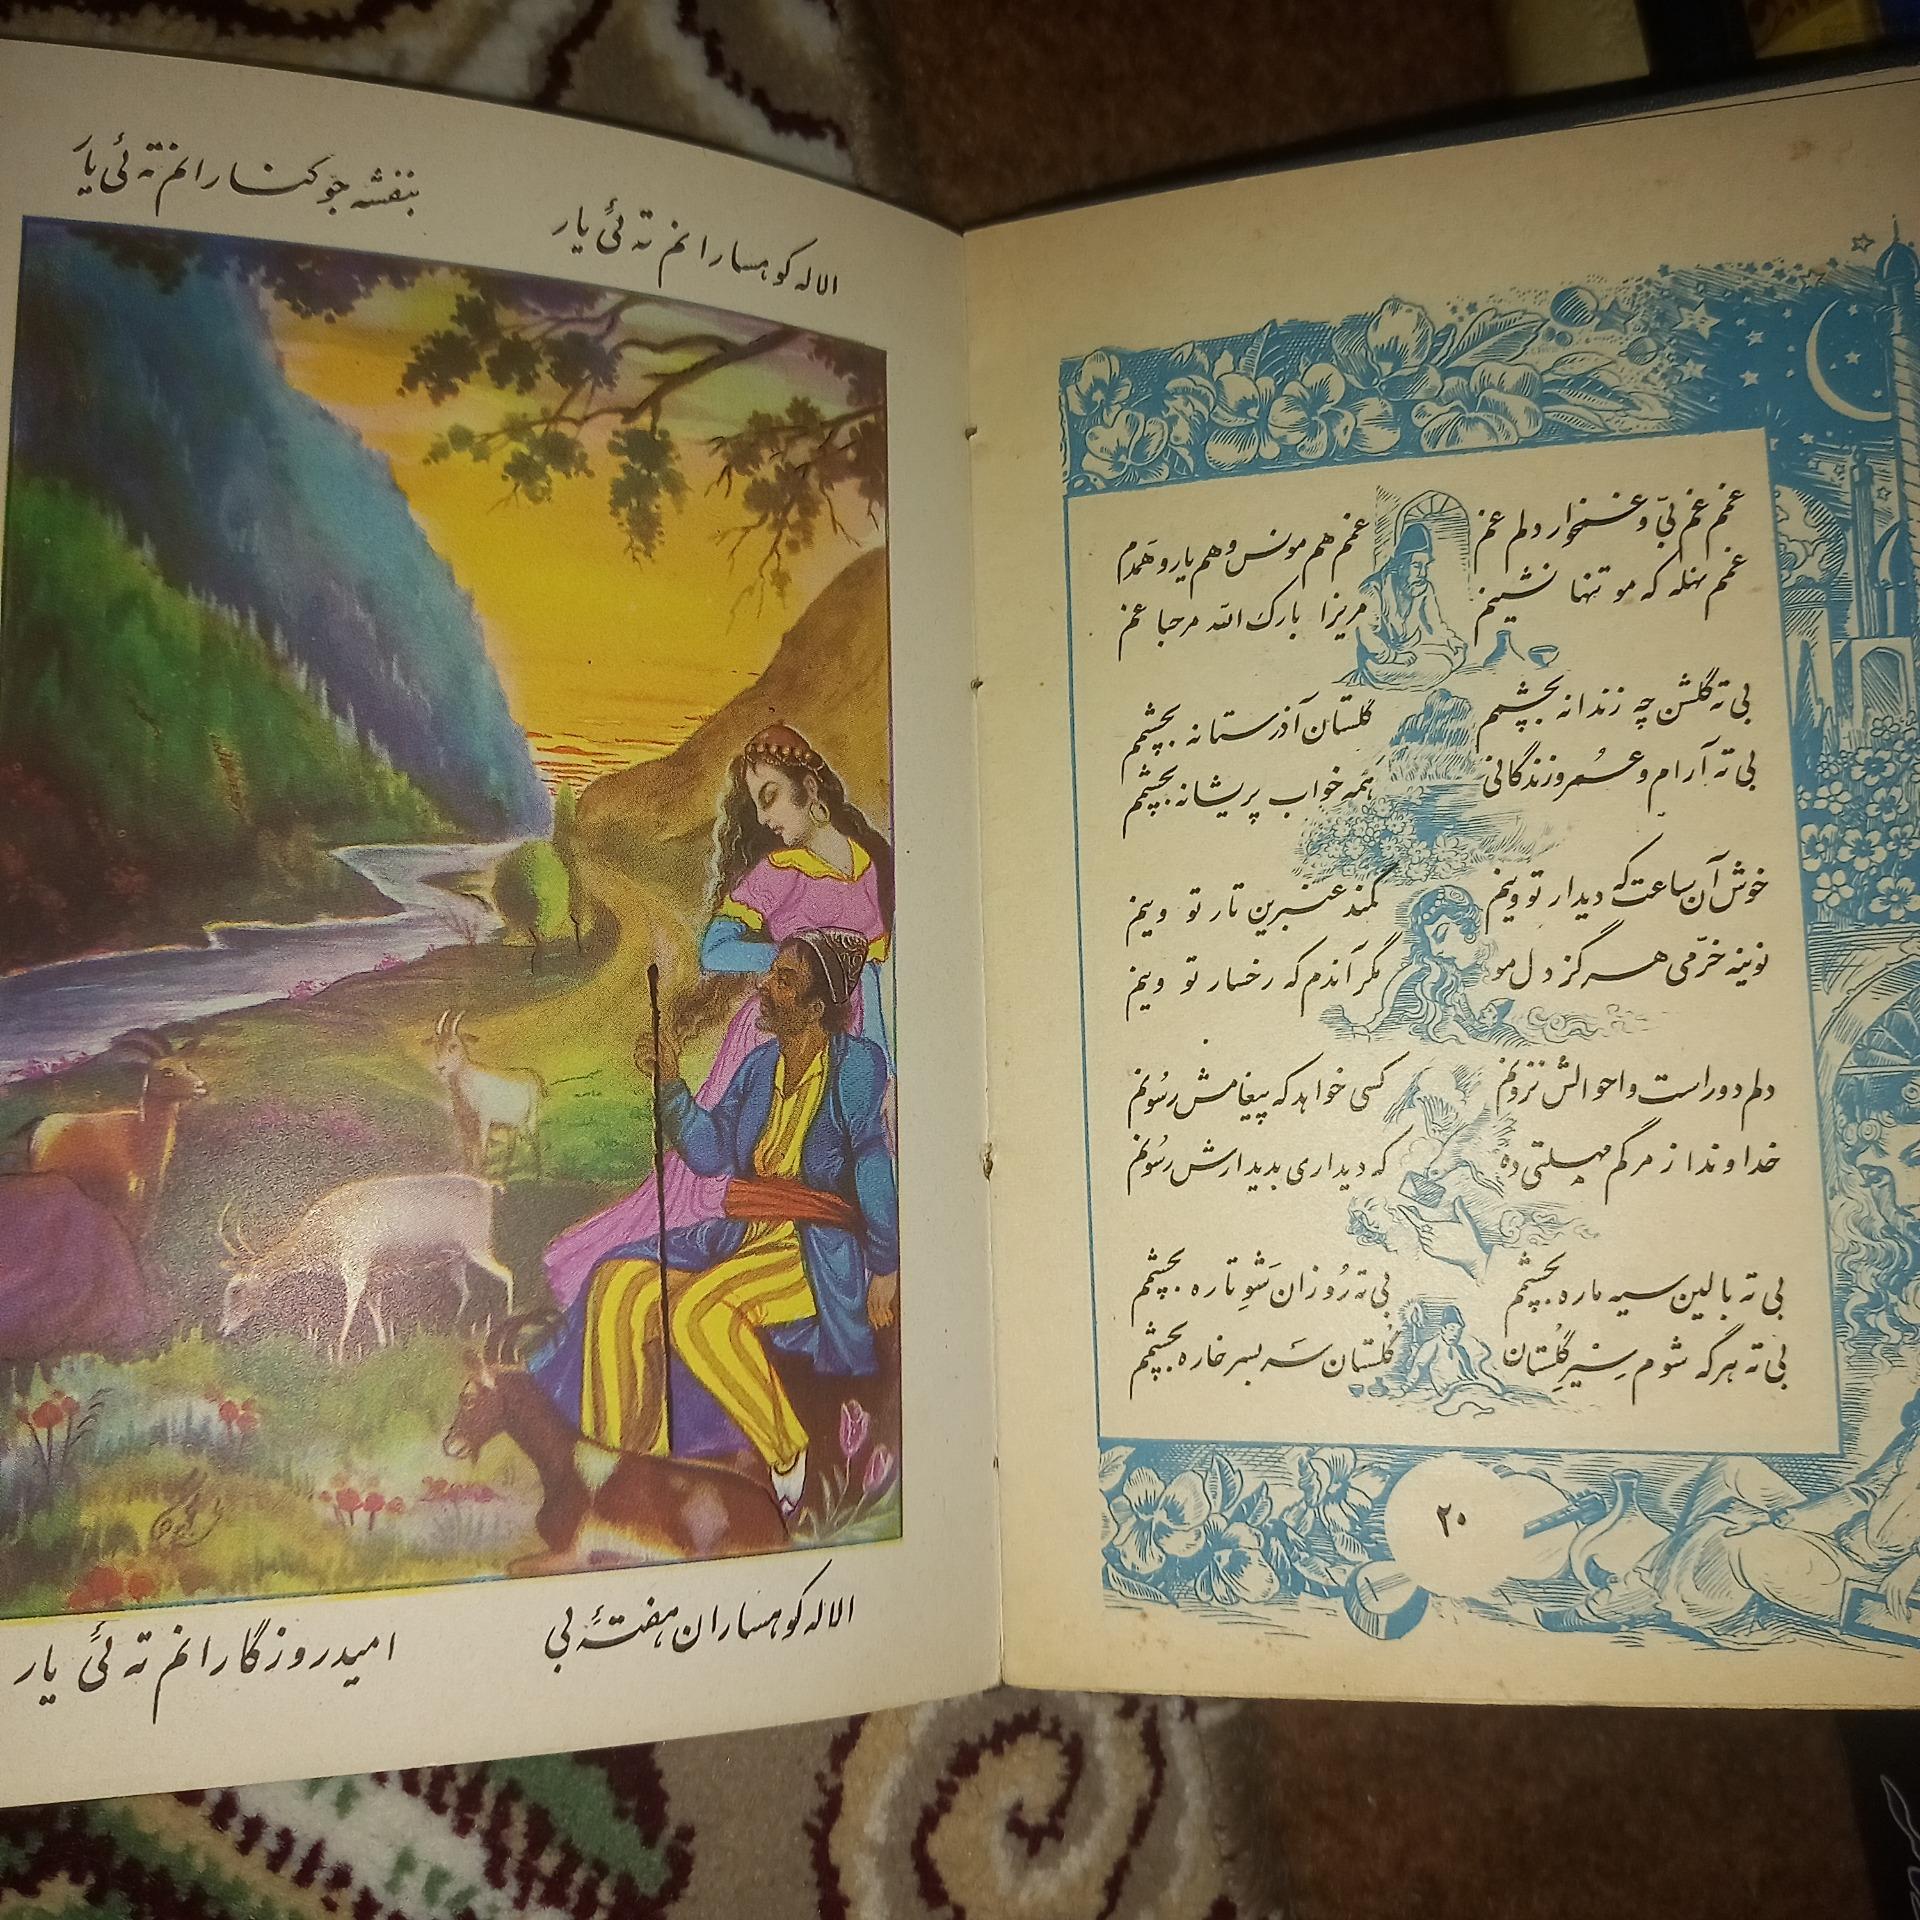 الاله کوهسارانم ته ئی یار
بنفشه جو کنارانم ته ئی یار
الاله کوهساران هفتهٔ بی
امید روزگارانم ته ئی یار
غمم غم بی و غمخوار دلم غم
غمم هم مونس و هم یار و همدم
غمم نهله که مو تنها نشینم
مریزا بارک الله مرحبا غم
بی ته گلشن چه زندانه بچشمم
گلستان آذرستانه بچشمم
بی ته آرام و عمر و زندگانی
همه خواب پریشانه بچشمم
خوش آن ساعت که دیدار تو وینم
کمند عنبرین تار تو وینم
نوینه خرّمی هرگز دل مو
مگر آندم که رخسار تو وینم
دلم دور است و احوالش نزونم
کسی خواهد که پیغامش رسُونم
خداوندا ز مرگم مهلتی ده
که دیداری بدیدارش رسُونم
بی ته بالین سیه ماره بچشمم
بی ته رُوزان شَوِ تاره بچشمم
بی ته هرگه شوم سِیرِ گُلِستان
گُلستان سَر بسر خاره بچشمم
۲۰